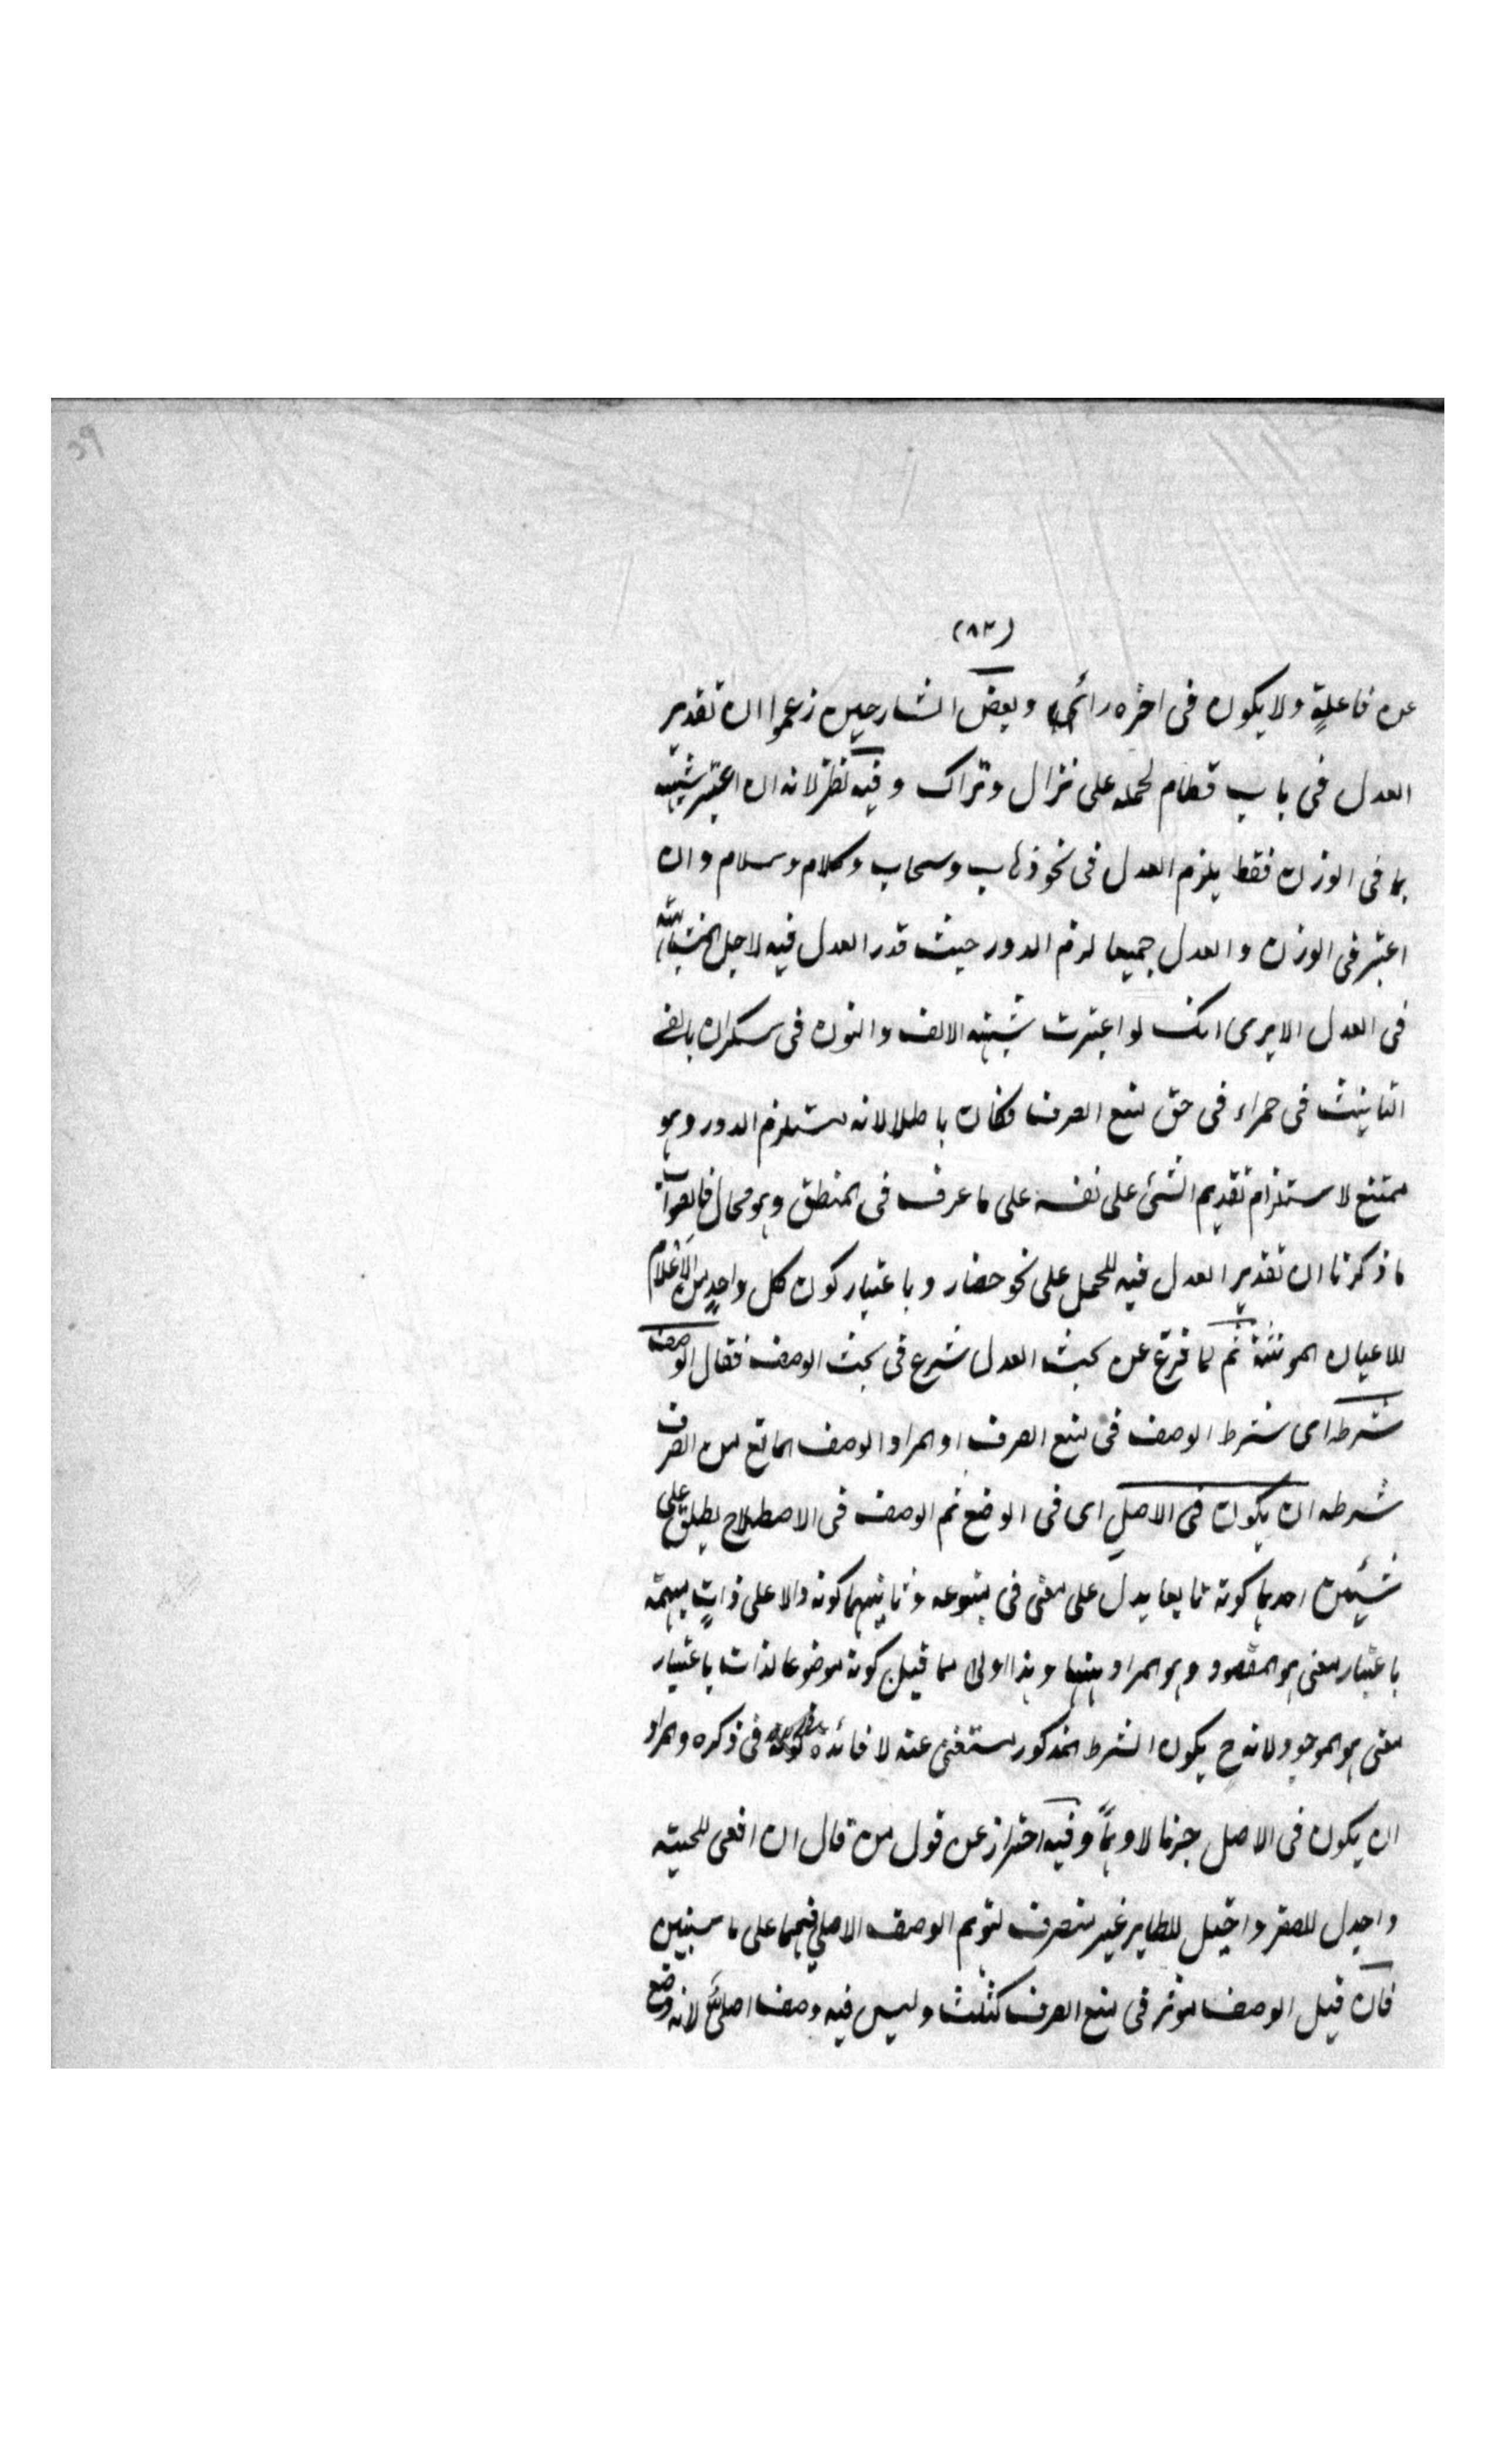 (٨٣)
عن فاعلةٍ ولا يكون فى اخره راءً وبعض الشارحين زعموا ان تقدير
العدل فى باب قطام لحمله على نزال وتراك وفيه نظر لانه ان اعتبر شبهه
بها فى الوزن فقط يلزم العدل فى نحو ذهاب وسحاب وكلام وسلام وان
اعتبر فى الوزن والعدل جميعا لزم الدور حيث قدر العدل فيه لاجل
فى العدل الا يرى انك لو اعتبرت شبهه الالف والنون فى سكران بالفى
التانيث فى حمراء فى حق منع الصرف فكان باطلا لانه يستلزم الدور وهو
ممتنع لاستلزام تقديم الشئ على نفسه على ما عرف فى المنطق وهو محال فالصواب
ما ذكرنا ان تقدير العدل فيه للحمل على نحو حضار وباعتبار كون كل واحدٍ من الاعلام
للاعيان المونثة ثم لما فرغ عن بحث العدل شرع فى بحث الوصف فقال الوصف
شرطه اى شرط الوصف فى منع الصرف او المراد الوصف المانع من الصرف
شرطه ان يكون فى الاصل اى فى الوضع ثم الوصف فى الاصطلاح يطلق على
شيئين احدهما كونه تابعا يدل على معنى فى متبوعه وثانيهما كونه دالا على ذاتٍ مبهمة
باعتبار معنى هو المقصود وهو المراد ههنا وهذا اولى مما قيل كونه موضوعا لذات باعتبار
معنى هو الموجود لانه ح يكون الشرط المذكور مستغنى عنه لا فائدة فى ذكره والمراد
ان يكون فى الاصل جزما لا وهمًا وفيه احتراز عن قول من قال ان افعى للحية
واجدل للصقر واخيل للطاير غير منصرف لتوهم الوصف الاصلي فيها على ما سنبين
فان قيل الوصف موثر فى منع الصرف كثلث وليس فيه وصف اصلىٌّ لانه وضع